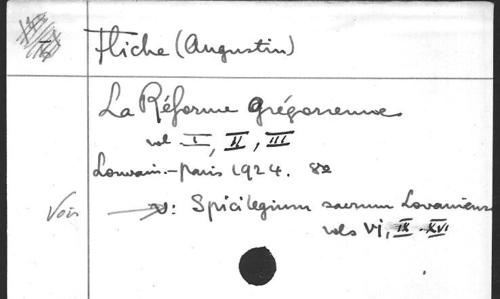 Fliche (Augustin)
La Réforme Grégorienne
vol I, II, III
Louvain-Paris 1924. 8º
Voir → v: Spicilegium sacrum Lovaniense
vols VI, IX-XVI